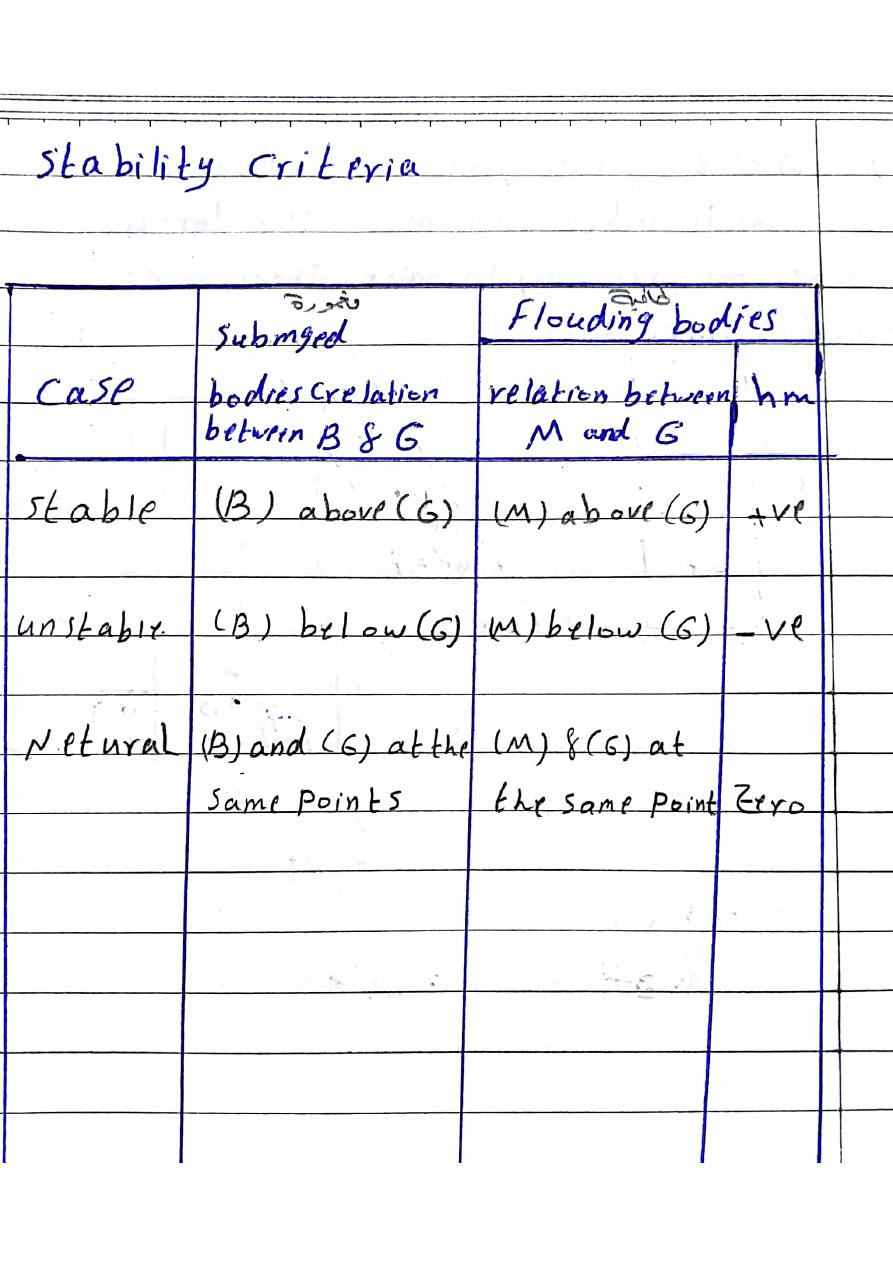 Stability Criteria
مغمورة
Submged
bodies (relation
between B & G
طافية
Flouding bodies
Case
relation between
M and G
hm
Stable
(B) above (G)
(M) above (G)
+ve
unstable.
(B) below (G)
(M) below (G)
-ve
Netural
(B) and (G) at the
same points
(M) & (G) at
the same point
Zero